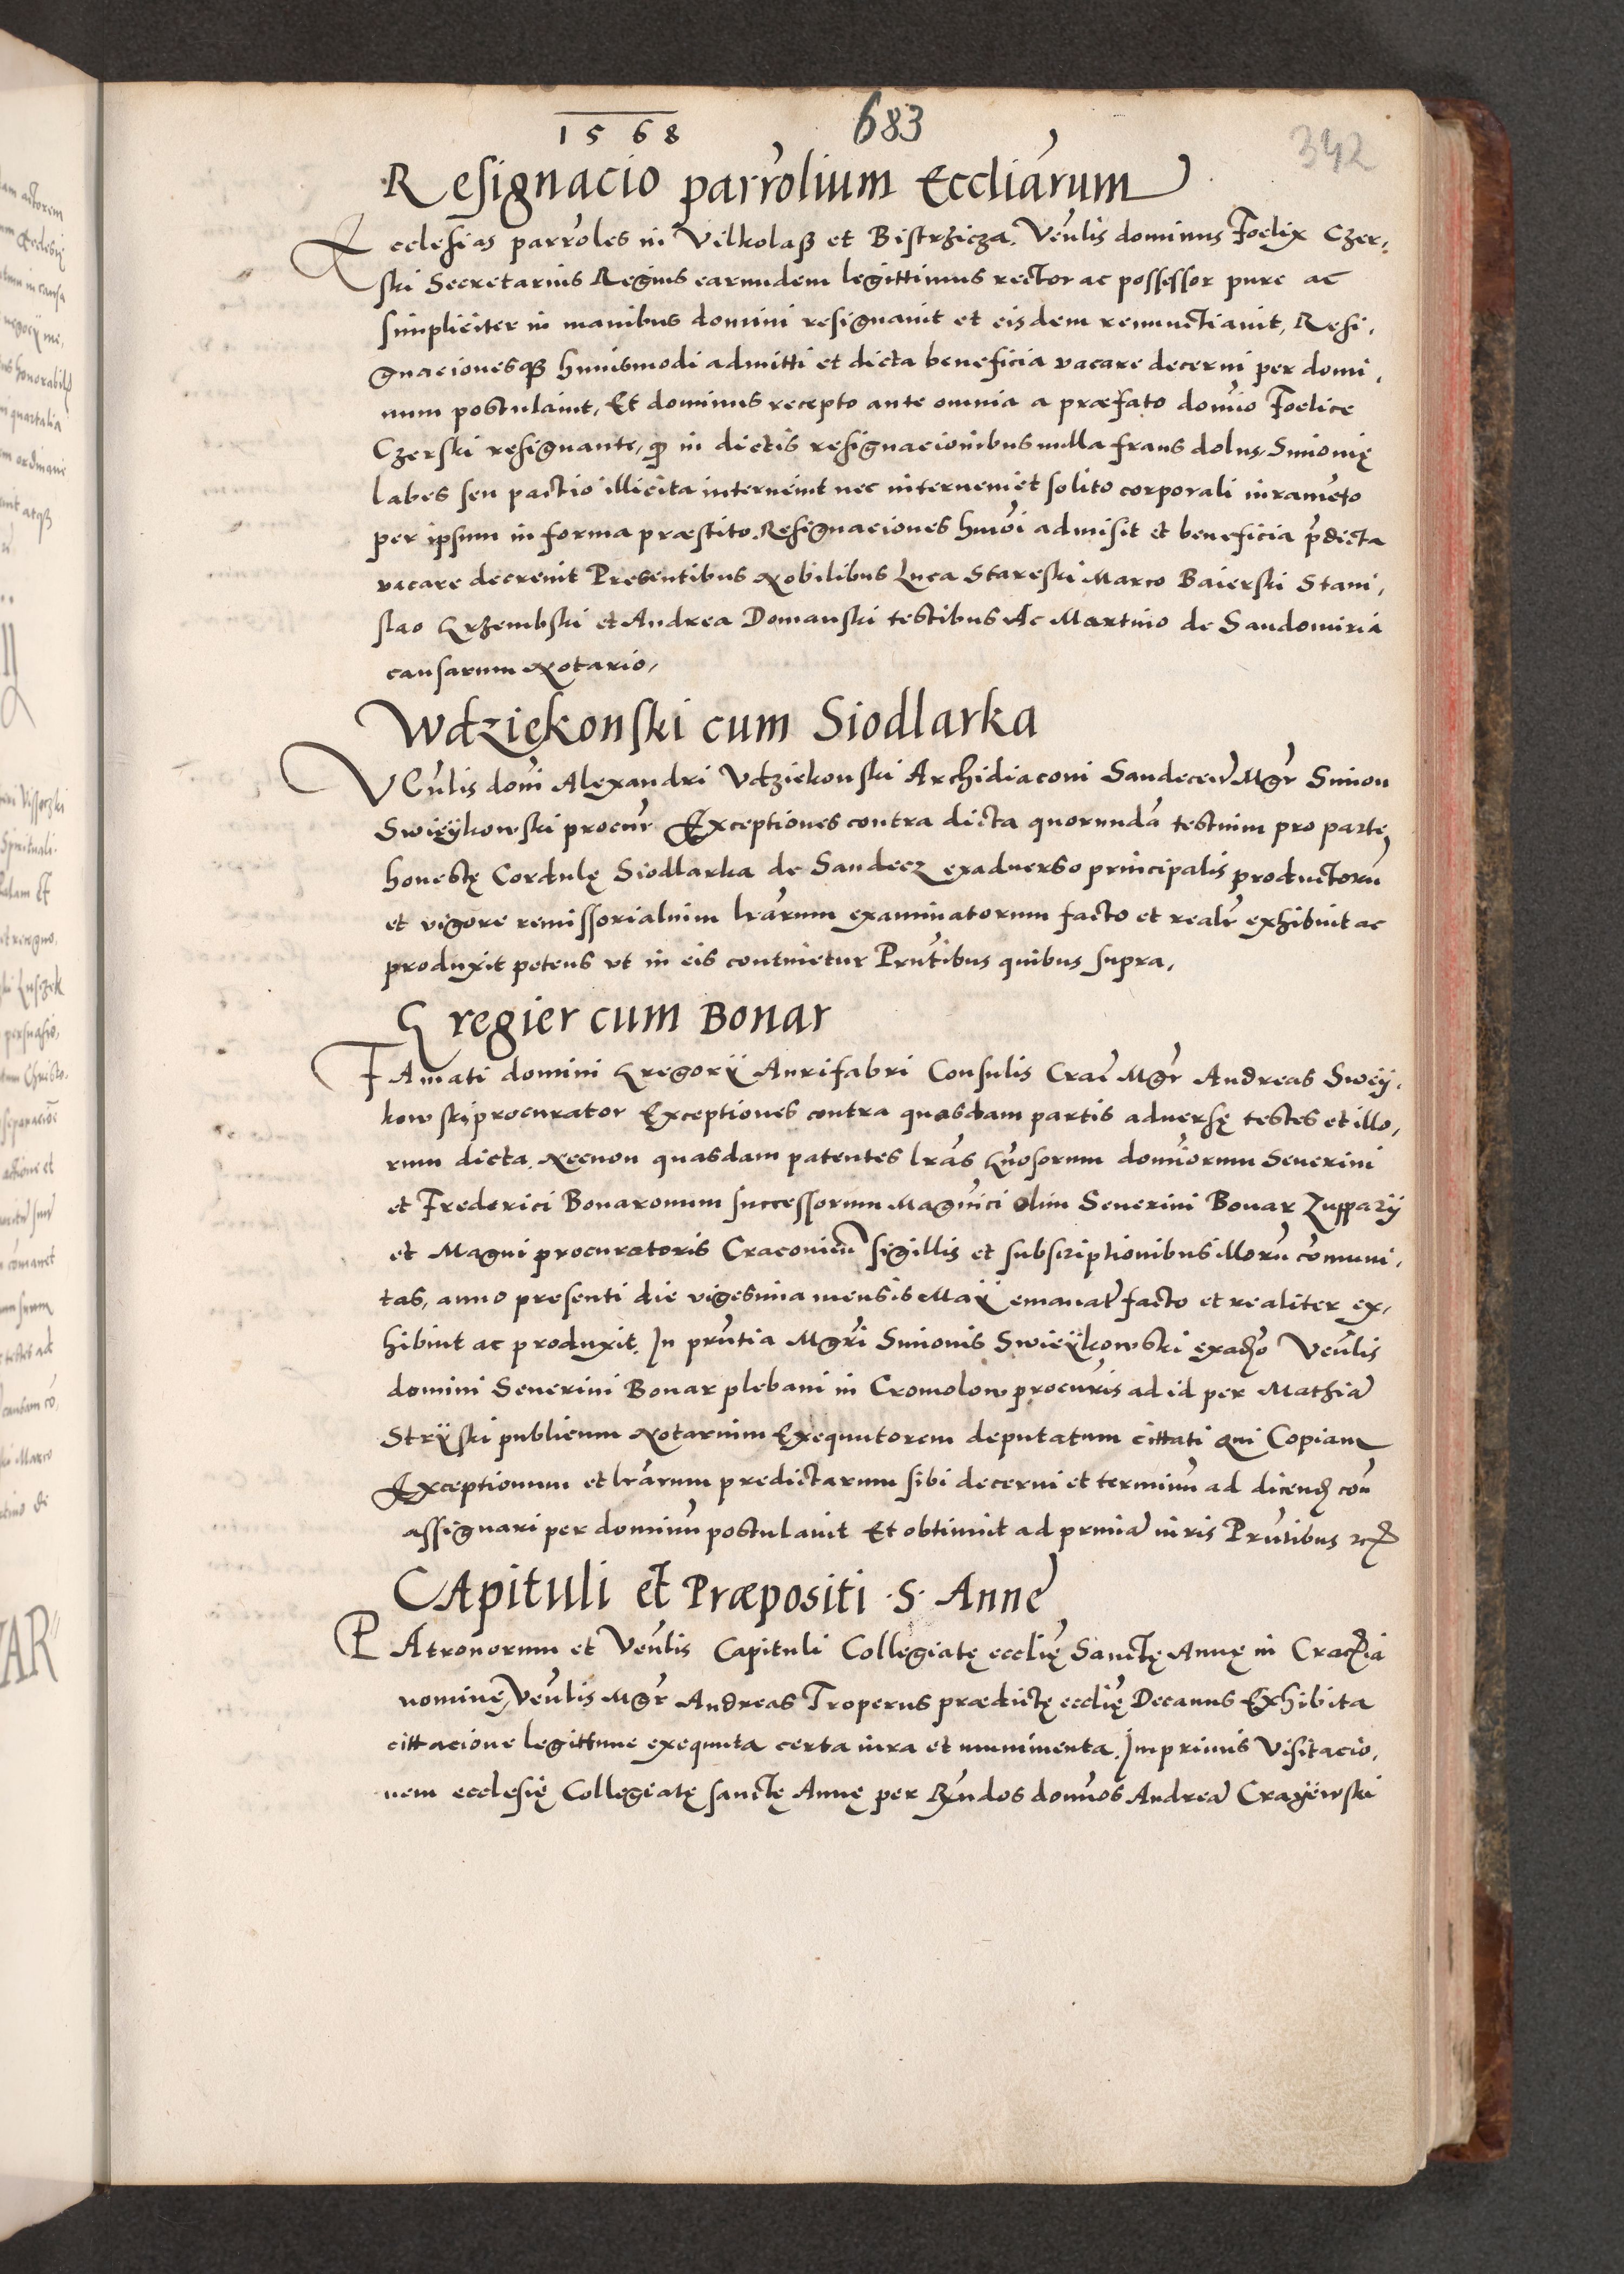 1568 683 342
Resignacio parrolium Eccliarum
Ecclesias parroles in Vilkolaß et Bistrzicza. Venlis dominus Foelix Czer,
ski Secretarius Regius earundem legittimus rector ac possessor pure ac
simpliciter in manibus domini resignauit et eisdem renunctiauit, Resi,
gnacionesq3 huiusmodi admitti et dicta beneficia vacare decerni per domi,
num postulauit, Et dominus recepto ante omnia a præfato domino Foelice
Czerski resignante, q in dictis resignacionibus nulla fraus dolus, Simonię
labes seu pactio illicita interueint nec interueniet solito corporali iuramēto
per ipsum in forma præstito. Resignaciones hmōi admisit et beneficia pdicta
vacare decreuit Presentibus Nobilibus Luca Stareski Marco Baierski Stani,
slao Grzembski et Andrea Domanski testibus Ac Martino de Sandomiria
causarum Notario,
Wdziękonski cum Siodlarka
VEnlis doni Alexandri Vdziekonski Archidiaconi Sandecen Mgr Simon
Swięÿkowski procur Exceptiones contra dicta quorundā testium pro parte
honestę Cordulę Siodlarka de Sandecz exaduerso principalis productorū
et vigore remissorialium lrarum examinatorum facto et realr exhibuit ac
produxit petens vt in eis continetur Pruntibus quibus supra,
Gregier cum Bonar
FAmati domini Gregorÿ Aurifabri Consulis Crac Mgr Andreas Swęÿ,
kowski procurator Exceptiones contra quasdam partis aduersę testes et illo,
rum dicta. Necnon quasdam patentes lras Gnosorum dominorum Seuerini
et Frederici Bonaronum successorum Magnici olim Seuerini Bonar Zupparÿ
et Magni procuratoris Cracouien sigillis et subscriptionibus illorū comuni,
tas, anno presenti die vigesima mensis Maÿ emanat facto et realiter ex,
hibuit ac produxit. In pruntia Mgri Simonis Swieÿkowski exadso Venlis
domini Seuerini Bonar plebani in Cromolow procuris ad id per Mathiā
Strÿski publicum Notarium Exequutorem deputatum cittati qui Copiam
Exceptionum et lrarum predictarum sibi decerni et terminū ad dicend con
assignari per dominū postulauit Et obtinuit ad prmiā iuris Pruntibus
CApituli et Præpositi .S. Anne
PAtronorum et Venlis Capituli Collegiatę ecclię Sanctę Annę in Cracia
nominę, Venlis Mgr Andreas Troperus prædictę ecclię Decanus Exhibita
cittacione legittime exequuta certa iura et munimenta. Imprimis Visitacio,
nem ecclesię Collegiatę sanctę Annę per Rndos domnos Andreā Craÿewski